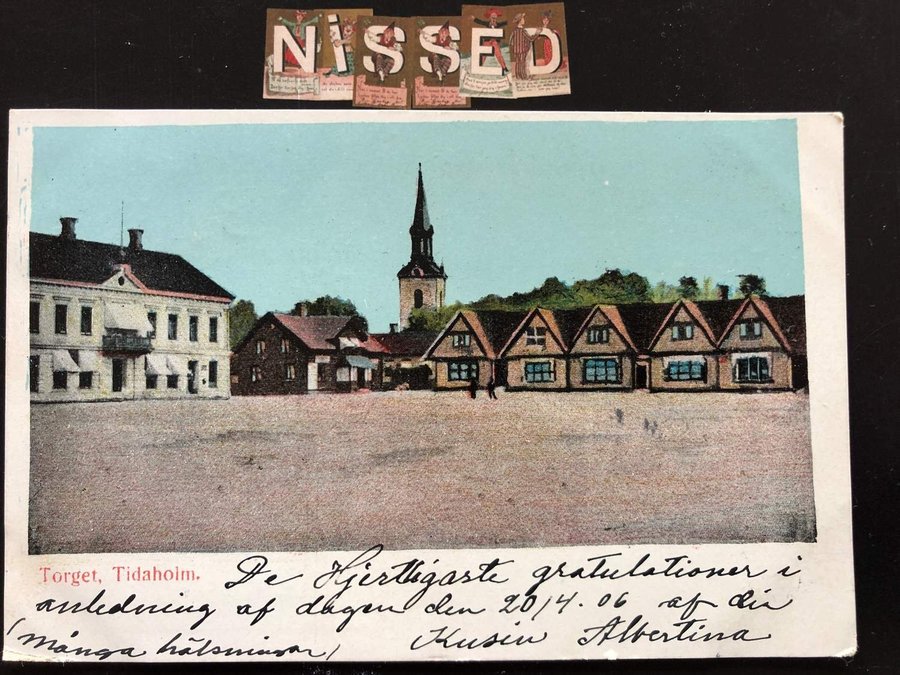 NiSSED
Torget, Tidaholm.
De Hjertligaste gratulationer i
anledning af dagen den 20/4.06 af din
(Många hälsningar) Kusin Albertina